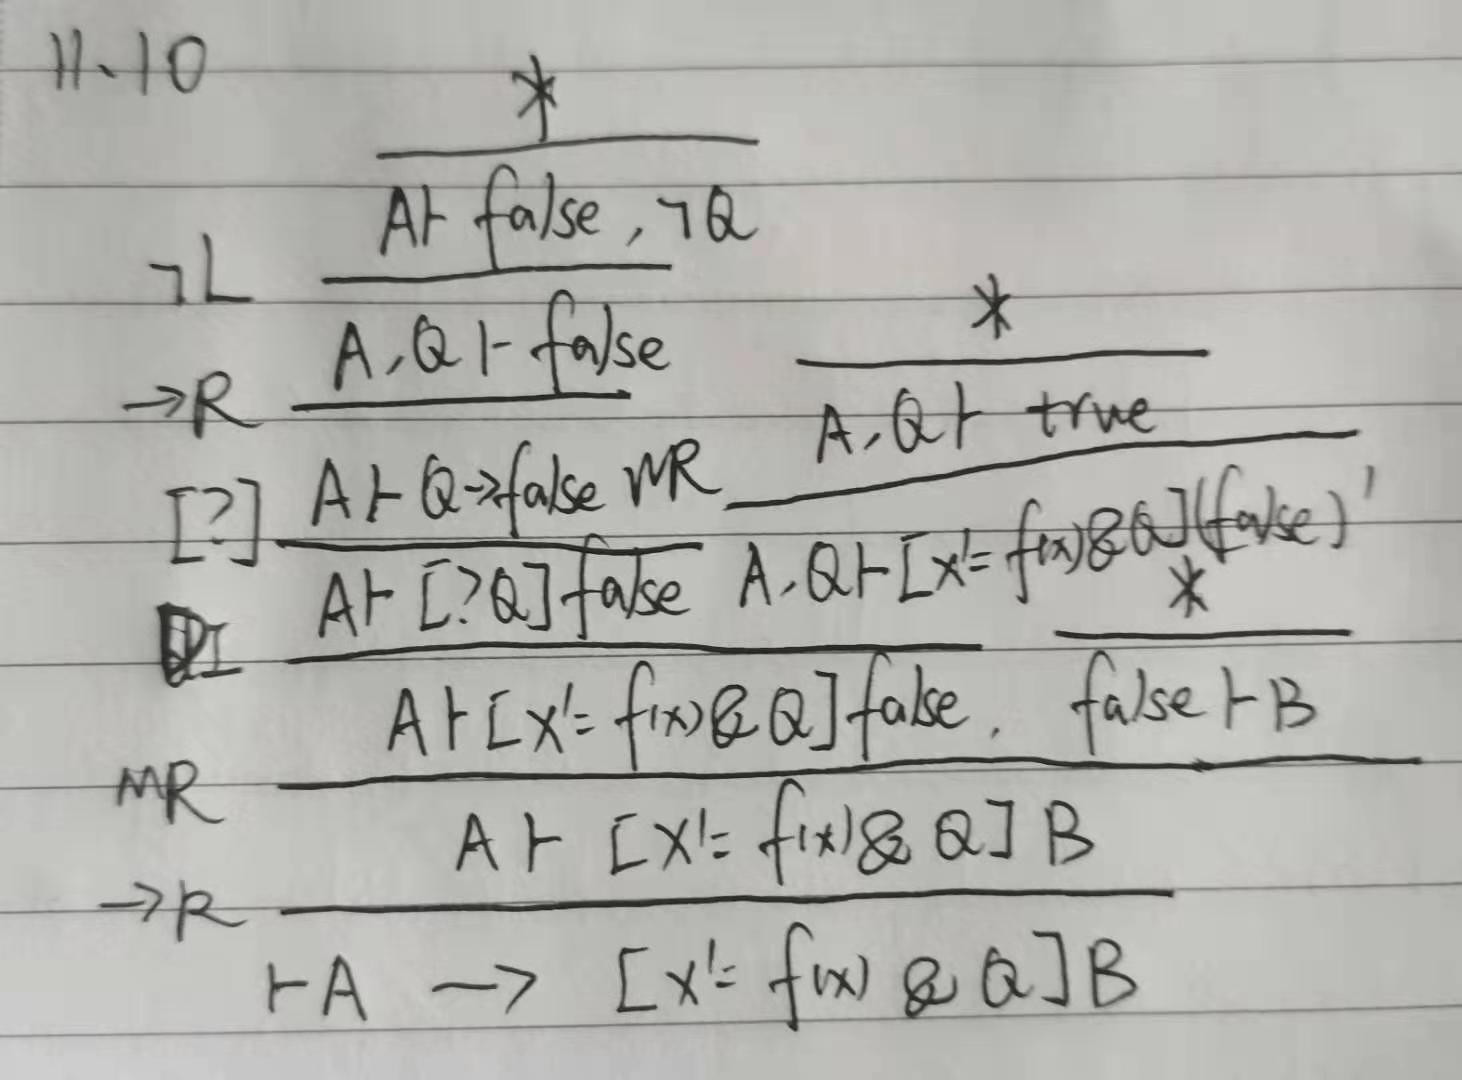 11.10
*
A⊢ false, ¬Q
¬L
A, Q ⊢ false
*
→R
A, Q ⊢ true
A ⊢ Q→false MR
[?]
A⊢ [?Q]false A, Q⊢[x'= f(x)&Q](false)'
*
DI
A⊢[x'= f(x)&Q]false, false⊢B
MR
A⊢ [x'= f(x)& Q] B
→R
⊢A → [x'= f(x) & Q]B